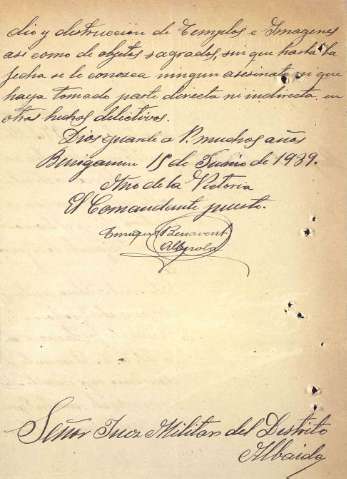 dio y destrucción de Templos e Imagenes
asi como de objetos sagrados, sin que hasta la
fecha se le conozca ningun asesinato, ni que
haya tomado parte directa ni indirecta en
otros hechos delictivos.
Dios guarde a V. muchos años
Benigamin 15 de Junio de 1939.
Año de la Victoria
El Comandante puesto.
Benavent
Señor Juez Militar del Distrito
Albaida